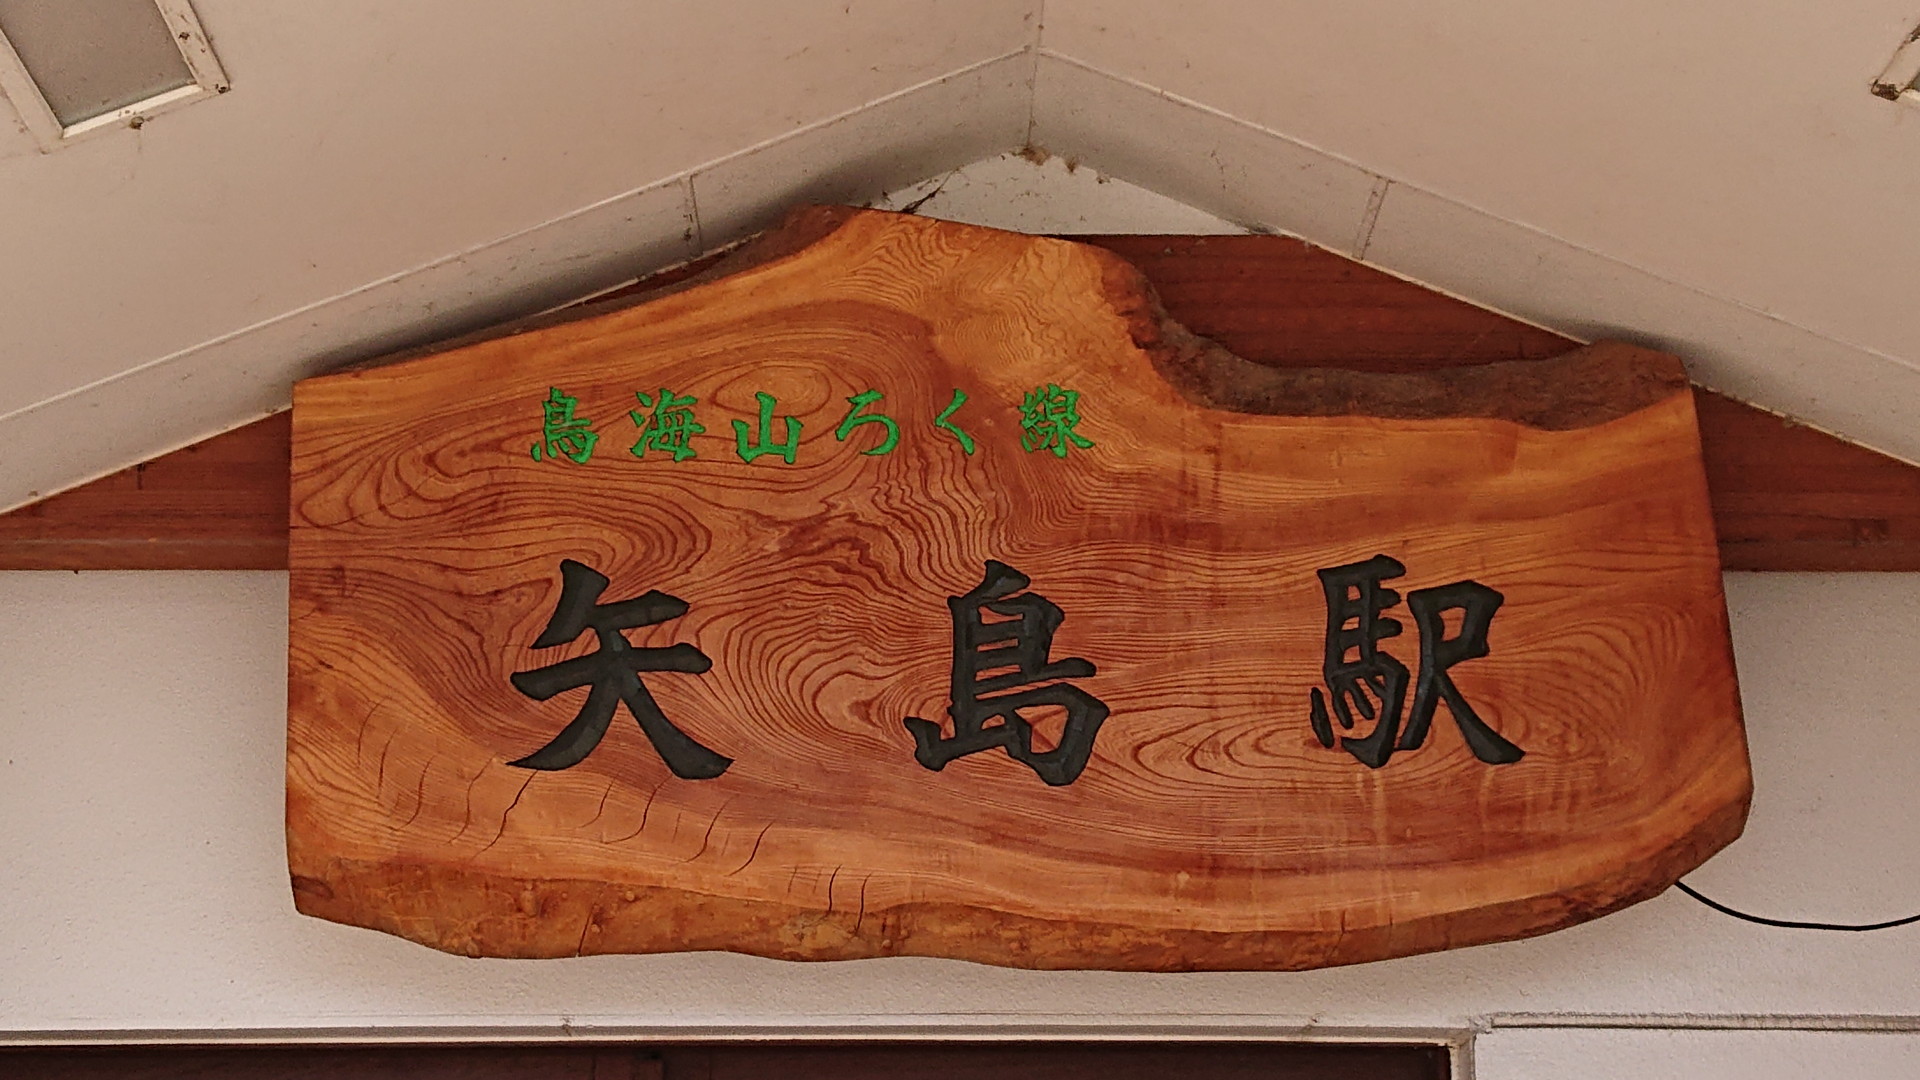 鳥海山ろく線
矢島駅